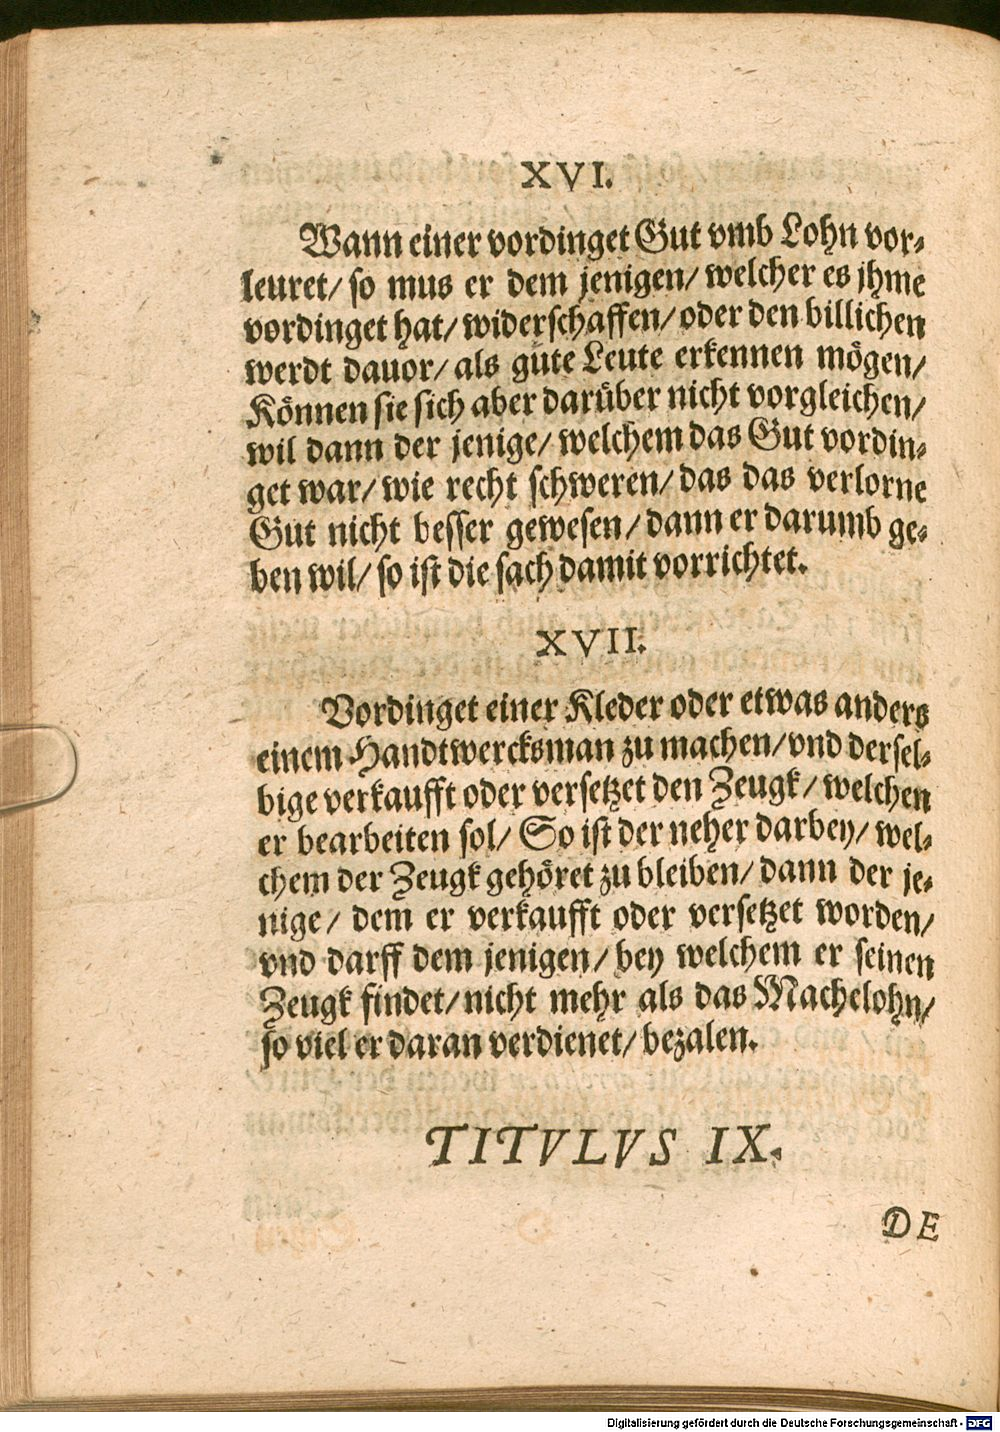 XVI.
Wann einer vordinget Gut vmb Lohn vor-
leuret/ so mus er dem jenigen/ welcher es jhme
vordinget hat/ widerschaffen/ oder den billichen
werdt dauor/ als gute Leute erkennen mögen/
Können sie sich aber darüber nicht vorgleichen/
wil dann der jenige/ welchem das Gut vordin-
get war/ wie recht schweren/ das das verlorne
Gut nicht besser gewesen/ dann er darumb ge-
ben wil/ so ist die sach damit vorrichtet.
XVII.
Vordinget einer Kleder oder etwas anders
einem Handtwercksman zu machen/ vnd dersel-
bige verkaufft oder versetzet den Zeugk/ welchen
er bearbeiten sol/ So ist der neher darbey/ wel-
chem der Zeugk gehöret zu bleiben/ dann der je-
nige/ dem er verkaufft oder versetzet worden/
vnd darff dem jenigen/ bey welchem er seinen
Zeugk findet/ nicht mehr als das Machelohn/
so viel er daran verdienet/ bezalen.
TITVLVS IX.
DE
Digitalisierung gefördert durch die Deutsche Forschungsgemeinschaft - DFG